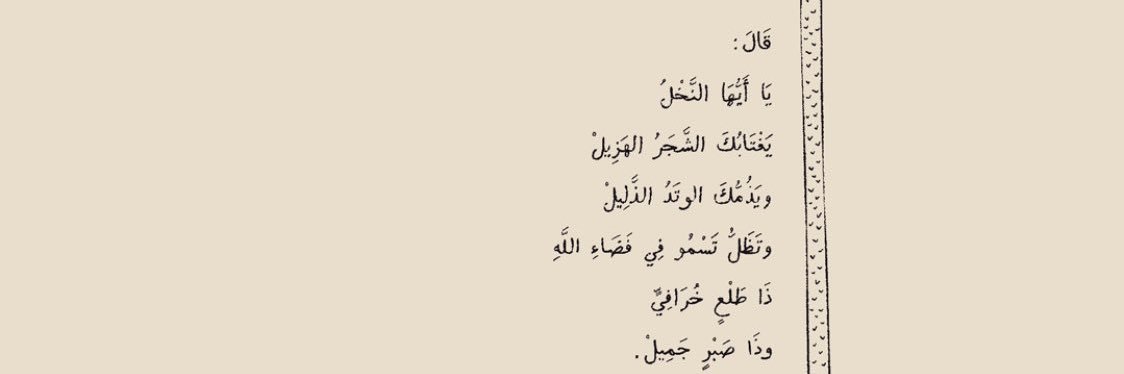 قَالَ:
يَا أَيُّهَا النَّخْلُ
يَغْتَابُكَ الشَّجَرُ الهَزِيلْ
ويَذُمُّكَ الوتَدُ الذَّلِيلْ
وتَظَلُّ تَسْمُو فِي فَضَاءِ اللَّهِ
ذَا طَلْعٍ خُرَافِيٍّ
وذَا صَبْرٍ جَمِيلْ.